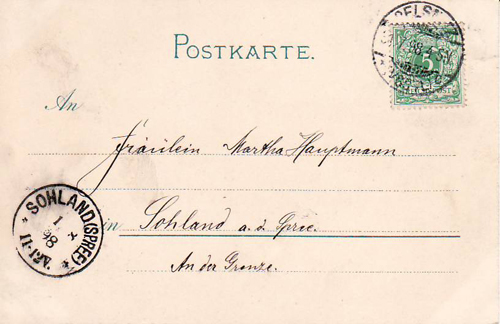 POSTKARTE.
5
An
Fräulein Martha Hauptmann
in Sohland a. d. Spree.
An der Grenze.
SOHLAND (SPREE)
98
11-12V.